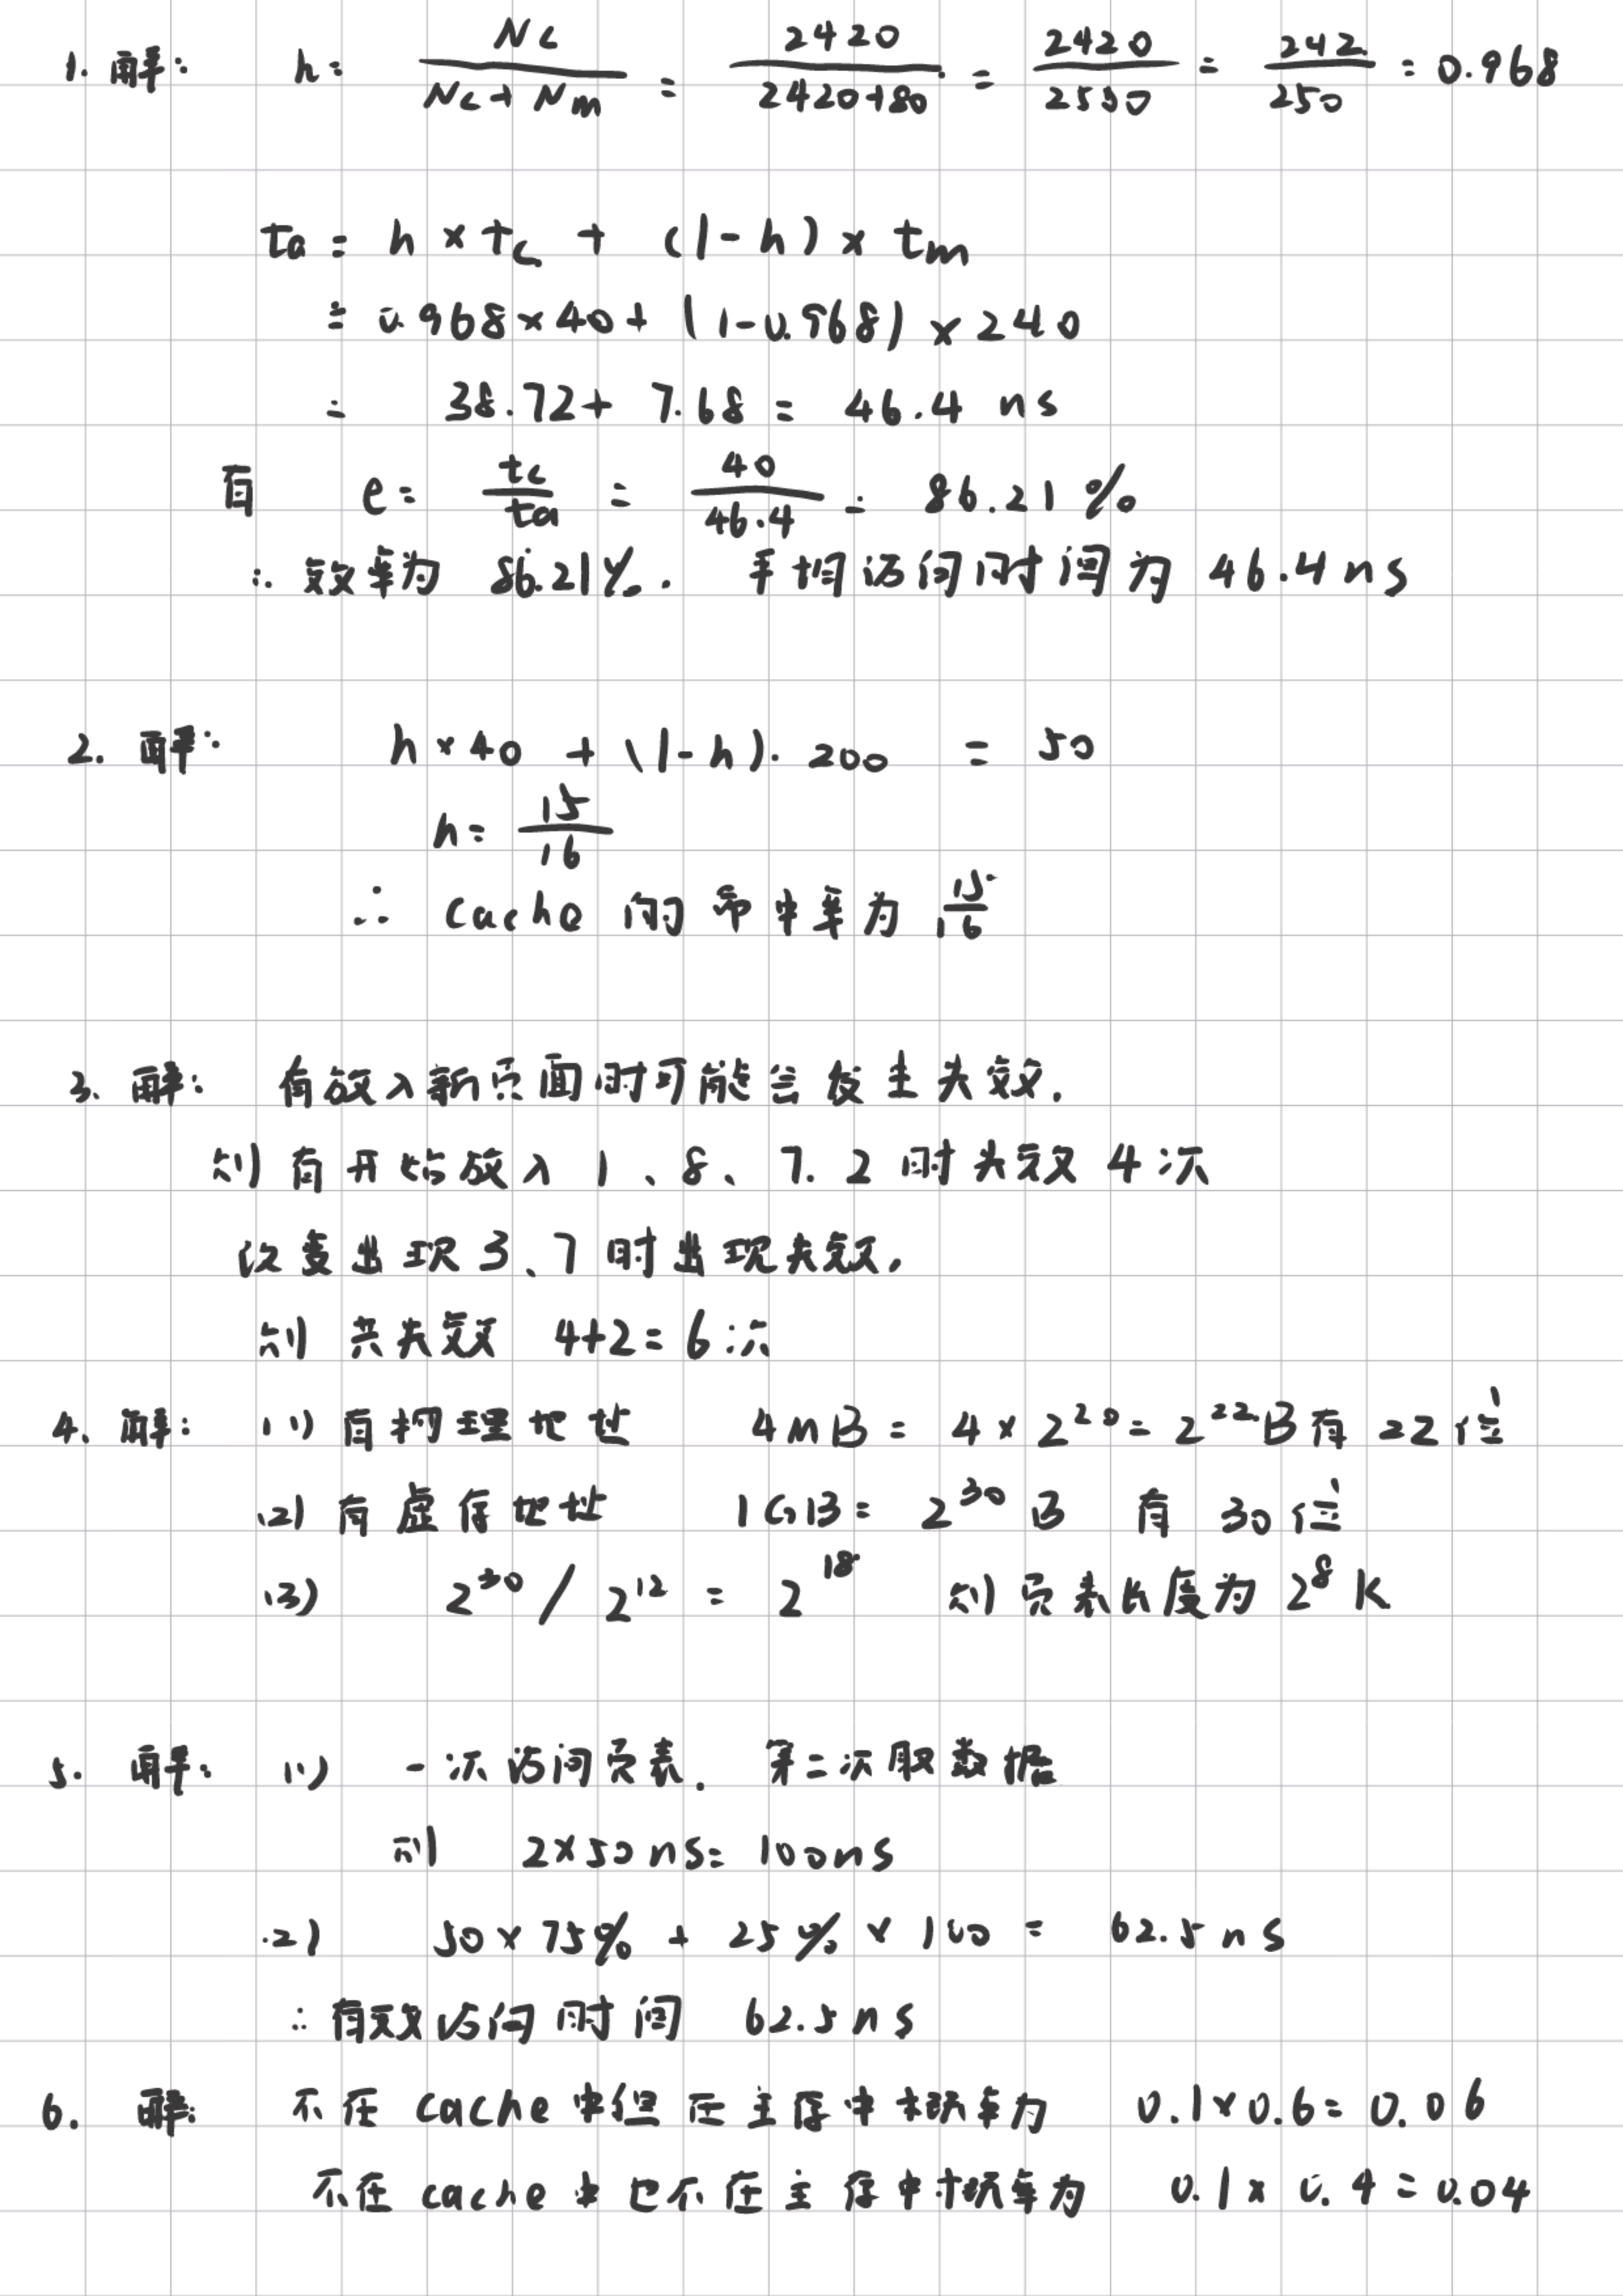 1. 解: h = Nc / (Nc + Nm) = 2420 / (2420+80) = 2420 / 2500 = 242 / 250 = 0.968
ta = h × tc + (1-h) × tm
= 0.968×40 + (1-0.968) × 240
= 38.72 + 7.68 = 46.4 ns
有 e = tc / ta = 40 / 46.4 = 86.21 %
∴ 效率为 86.21%. 平均访问时间为 46.4 ns
2. 解: h×40 + (1-h)· 200 = 50
h = 15 / 16
∴ cache 的命中率为 15/16
3. 解: 有放入新页面时可能会发生失效.
则有开始放入 1、8、7. 2 时失效 4 次
改变出现 3、7 时出现失效.
则 共失效 4+2=6 次
4. 解: (1) 有物理地址 4MB = 4 × 2^20 = 2^22 B 有 22 位
(2) 有虚存地址 1GB = 2^30 B 有 30 位
(3) 2^30 / 2^12 = 2^18 则页表长度为 2^8 K
5. 解: (1) 一次访问页表. 第二次取数据
则 2×50ns = 100ns
(2) 50×75% + 25% × 100 = 62.5 ns
∴ 有效访问时间 62.5 ns
6. 解: 不在 cache 中但在主存中概率为 0.1×0.6=0.06
不在 cache 中也不在主存中概率为 0.1×0.4=0.04